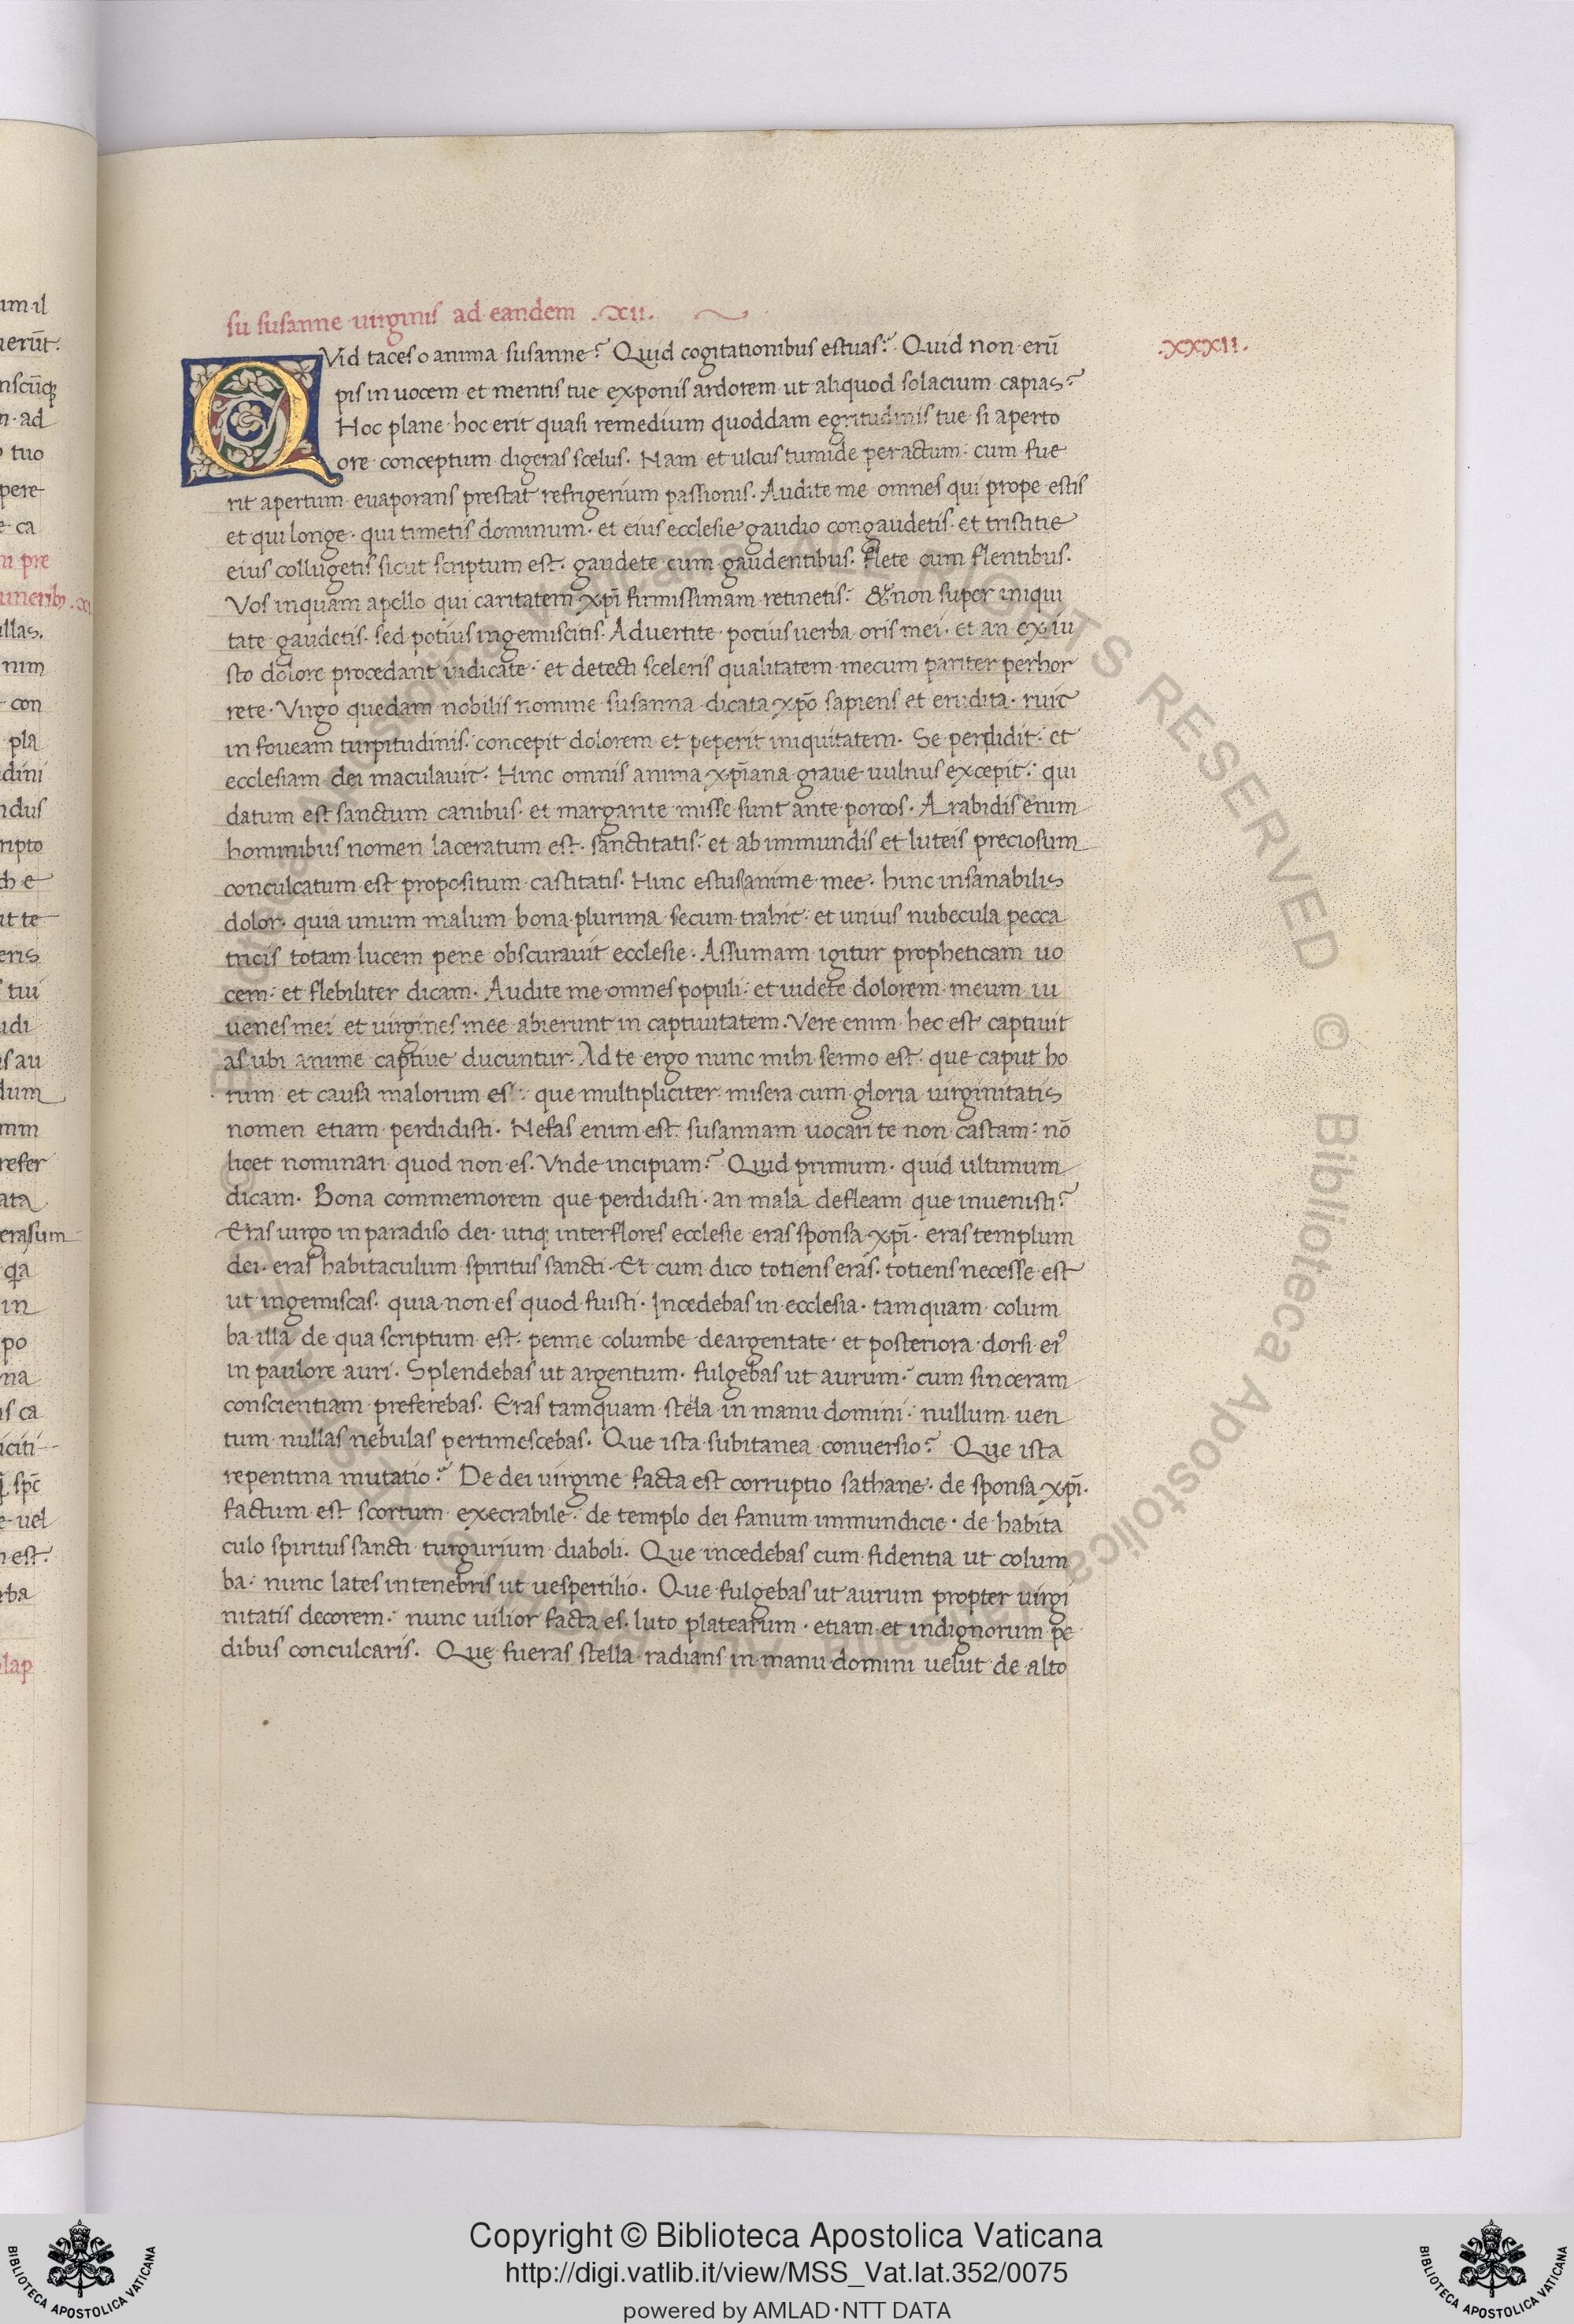 su susanne uirginis ad eandem .XII.
.XXXII.
QVid taces o anima susanne? Quid cogitationibus estuas? Quid non erū
pis in uocem et mentis tue exponis ardorem ut aliquod solacium capias?
Hoc plane hoc erit quasi remedium quoddam egritudinis tue si aperto
ore conceptum digeras scelus. Nam et ulcus tumide peractum: cum fue
rit apertum euaporans prestat refrigerium passionis. Audite me omnes qui prope estis
et qui longe. qui timetis dominum. et eius ecclesie gaudio congaudetis. et tristitie
eius collugetis sicut scriptum est. gaudete cum gaudentibus. flete cum flentibus.
Vos inquam apello qui caritatem xp̄i firmissimam retinetis: & non super iniqui
tate gaudetis. sed potius ingemiscitis. Aduertite potius uerba oris mei. et an ex iu
sto dolore procedant iudicate: et detecti sceleris qualitatem mecum pariter perhor
rete. Virgo quedam nobilis nomine susanna dicata xp̄o sapiens et erudita. ruit
in foueam turpitudinis. concepit dolorem et peperit iniquitatem. Se perdidit: et
ecclesiam dei maculauit. Hinc omnis anima xp̄iana graue uulnus excepit: qui
datum est sanctum canibus. et margarite misse sunt ante porcos. A rabidis enim
hominibus nomen laceratum est. sanctitatis: et ab immundis et luteis preciosum
conculcatum est propositum castitatis. Hinc estus anime mee. hinc insanabilis
dolor. quia unum malum bona plurima secum trahit: et unius nubecula pecca
tricis totam lucem pene obscurauit ecclesie. Assumam igitur propheticam uo
cem: et flebiliter dicam. Audite me omnes populi: et uidete dolorem meum iu
uenes mei et uirgines mee abierunt in captiuitatem. Vere enim hec est captiuit
as ubi anime captiue ducuntur. Ad te ergo nunc mihi sermo est. que caput ho
rum et causa malorum es: que multipliciter misera cum gloria uirginitatis
nomen etiam perdidisti. Nefas enim est susannam uocari te non castam: nō
licet nominari quod non es. Vnde incipiam? Quid primum. quid ultimum
dicam. Bona commemorem que perdidisti. an mala defleam que inuenisti?
Eras uirgo in paradiso dei. utiq; inter flores ecclesie eras sponsa xp̄i. eras templum
dei. eras habitaculum spiritus sancti. Et cum dico totiens eras. totiens necesse est
ut ingemiscas. quia non es quod fuisti. Incedebas in ecclesia. tamquam colum
ba illa de qua scriptum est. penne columbe deargentate. et posteriora dorsi ei9
in paulore auri. Splendebas ut argentum. fulgebas ut aurum: cum sinceram
conscientiam preferebas. Eras tamquam stela in manu domini: nullum uen
tum nullas nebulas pertimescebas. Que ista subitanea conuersio? Que ista
repentina mutatio? De dei uirgine facta est corruptio sathane. de sponsa xp̄i.
factum est scortum execrabile: de templo dei fanum immundicie. de habita
culo spiritus sancti turgurium diaboli. Que incedebas cum fidentia ut colum
ba: nunc lates in tenebris ut uespertilio. Que fulgebas ut aurum propter uirgi
nitatis decorem: nunc uilior facta es luto platearum. etiam et indignorum pe
dibus conculcaris. Que fueras stella radians in manu domini uelut de alto
Copyright © Biblioteca Apostolica Vaticana
http://digi.vatlib.it/view/MSS_Vat.lat.352/0075
powered by AMLAD·NTT DATA